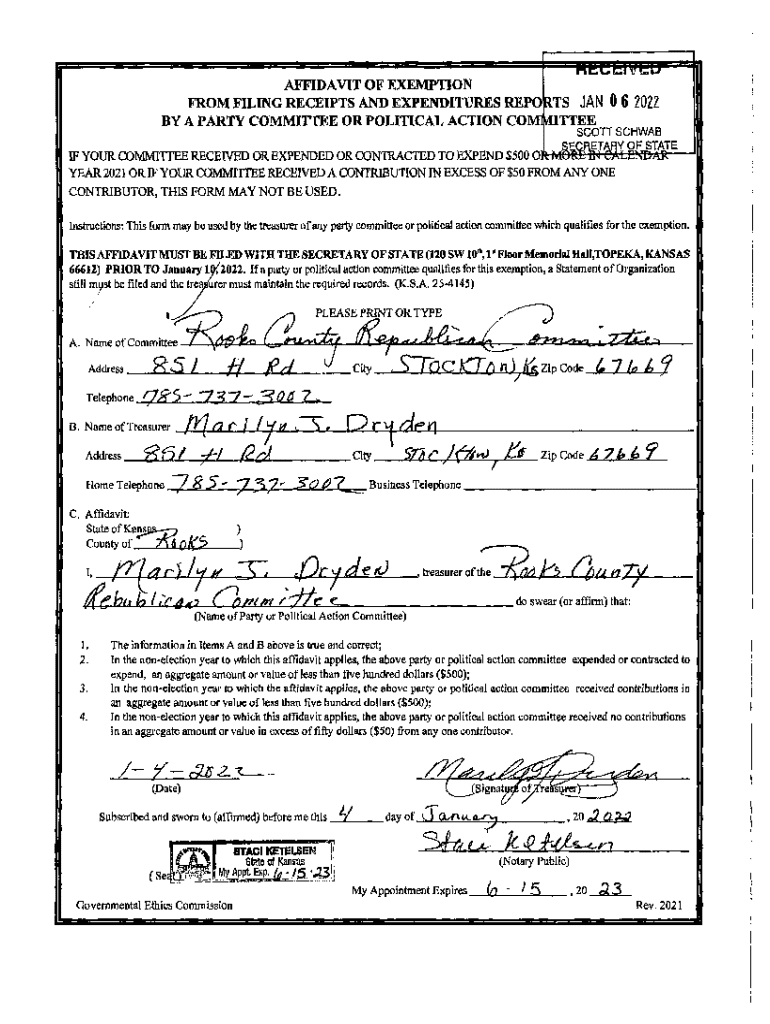 RECEIVED
AFFIDAVIT OF EXEMPTION
FROM FILING RECEIPTS AND EXPENDITURES REPORTS JAN 06 2022
BY A PARTY COMMITTEE OR POLITICAL ACTION COMMITTEE
SCOTT SCHWAB
SECRETARY OF STATE
IF YOUR COMMITTEE RECEIVED OR EXPENDED OR CONTRACTED TO EXPEND $500 OR MORE IN CALENDAR
YEAR 2021 OR IF YOUR COMMITTEE RECEIVED A CONTRIBUTION IN EXCESS OF $50 FROM ANY ONE
CONTRIBUTOR, THIS FORM MAY NOT BE USED.
Instructions: This form may be used by the treasurer of any party committee or political action committee which qualifies for the exemption.
THIS AFFIDAVIT MUST BE FILED WITH THE SECRETARY OF STATE (120 SW 10th, 1st Floor Memorial Hall, TOPEKA, KANSAS
66612) PRIOR TO January 10, 2022. If a party or political action committee qualifies for this exemption, a Statement of Organization
still must be filed and the treasurer must maintain the required records. (K.S.A. 25-4145)
PLEASE PRINT OR TYPE
A. Name of Committee Rooks County Republican Committee
Address 851 H Rd City STOCKTON, Ks Zip Code 67669
Telephone 785-737-3002
B. Name of Treasurer Marilyn J. Dryden
Address 851 H Rd City Stockton, Ks Zip Code 67669
Home Telephone 785-737-3002 Business Telephone
C. Affidavit:
State of Kansas )
County of Rooks )
I, Marilyn J. Dryden, treasurer of the Rooks County
Rebublican Committee do swear (or affirm) that:
(Name of Party or Political Action Committee)
1. The information in Items A and B above is true and correct;
2. In the non-election year to which this affidavit applies, the above party or political action committee expended or contracted to
expend, an aggregate amount or value of less than five hundred dollars ($500);
3. In the non-election year to which the affidavit applies, the above party or political action committee received contributions in
an aggregate amount or value of less than five hundred dollars ($500);
4. In the non-election year to which this affidavit applies, the above party or political action committee received no contributions
in an aggregate amount or value in excess of fifty dollars ($50) from any one contributor.
1-4-2022 Marilyn J Dryden
(Date) (Signature of Treasurer)
Subscribed and sworn to (affirmed) before me this 4 day of January, 20 2022
Staci Ketelsen
(Notary Public)
STACI KETELSEN
State of Kansas
My Appt. Exp. 6-15-23
(Seal)
My Appointment Expires 6-15, 20 23
Governmental Ethics Commission Rev. 2021